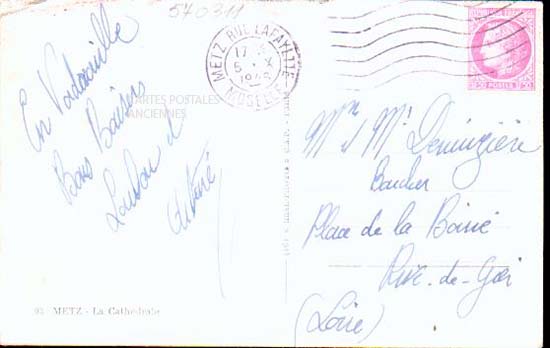 570311
En Vadrouille
Bons Baisers
Loulou et
METZ RUE LAFAYETTE
17
5 X
MOSELLE
POSTES
CARTES POSTALES
ANCIENNES
Mme et Mr
Boucher
Place de la
Rive-de-Gier
(Loire)
93 METZ - La Cathédrale